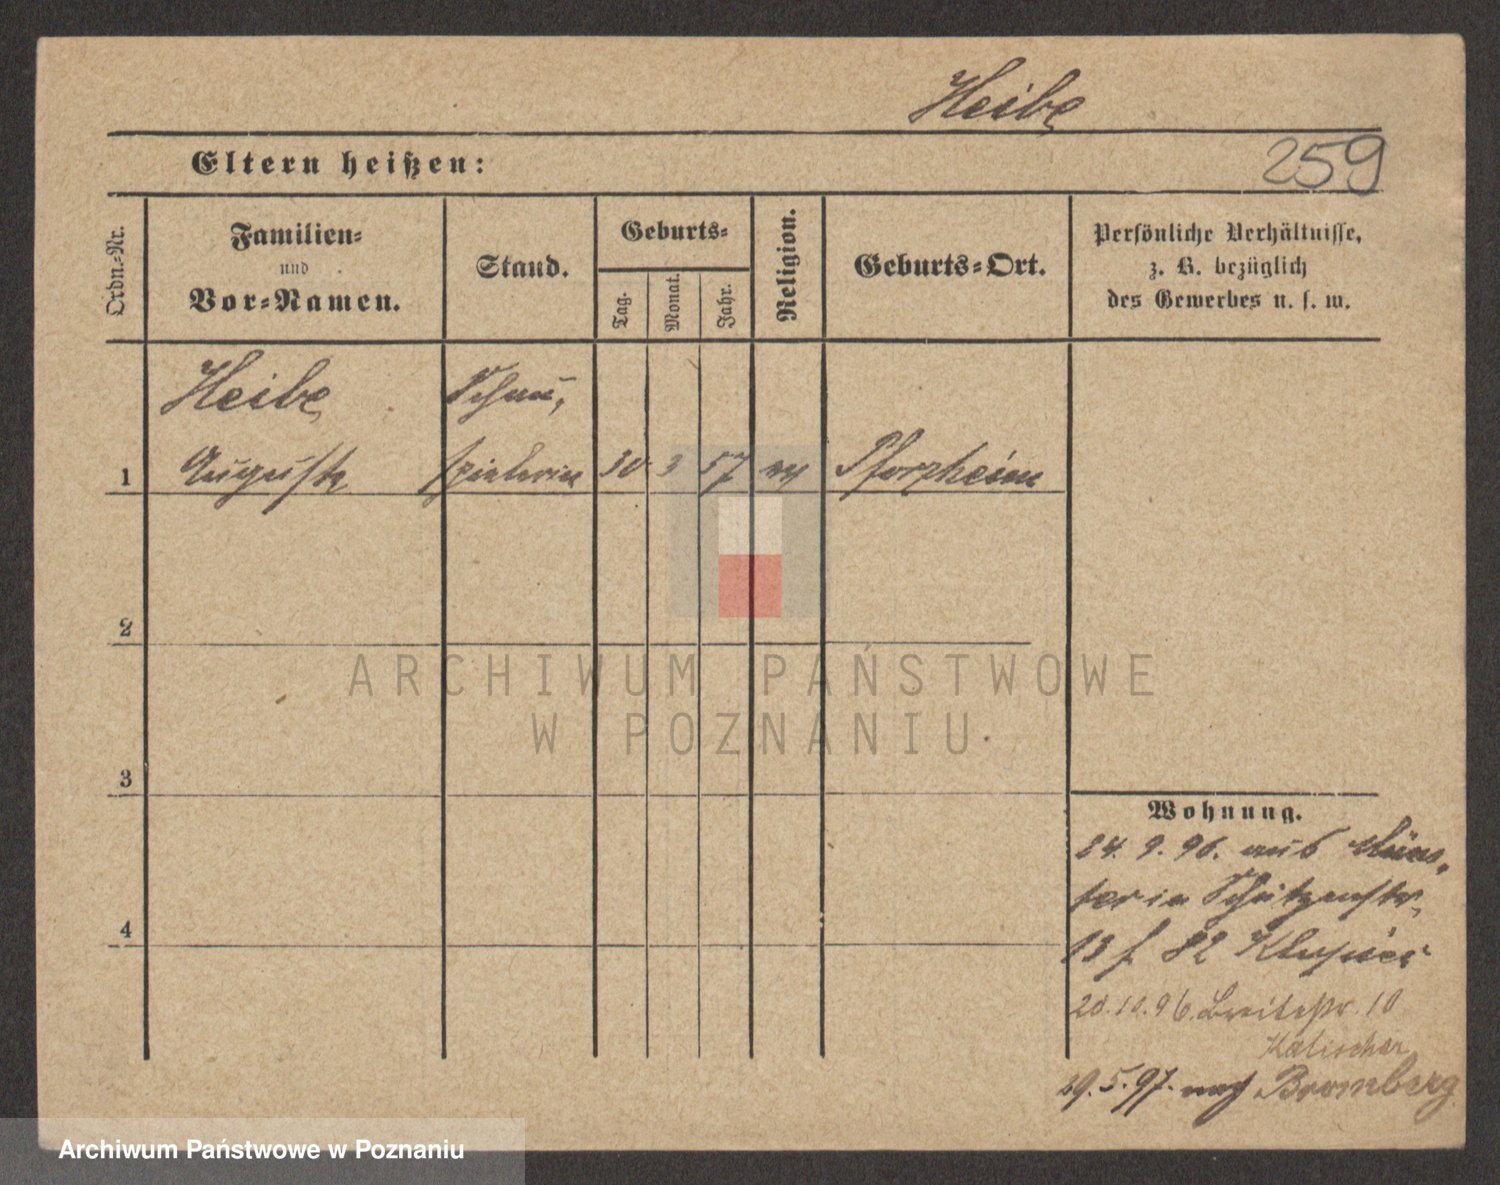 Heibe
Eltern heißen:
259
Ordn.-Nr.
Familien-
und
Vor-Namen.
Stand.
Geburts-
Tag.
Monat.
Jahr.
Religion.
Geburts-Ort.
Persönliche Verhältnisse,
z. B. bezüglich
des Gewerbes u. s. w.
Heibe
Schau,
1
Auguste
spielerin
30
3
57
ev
Pforzheim
2
ARCHIWUM PAŃSTWOWE
W POZNANIU
3
Wohnung.
24. 9. 96. aus Müns,
ter in Schützenstr.
4
13 f 82
20.10.96. Breitestr. 10
Kalischer
29.5.97. nach Bromberg
Archiwum Państwowe w Poznaniu